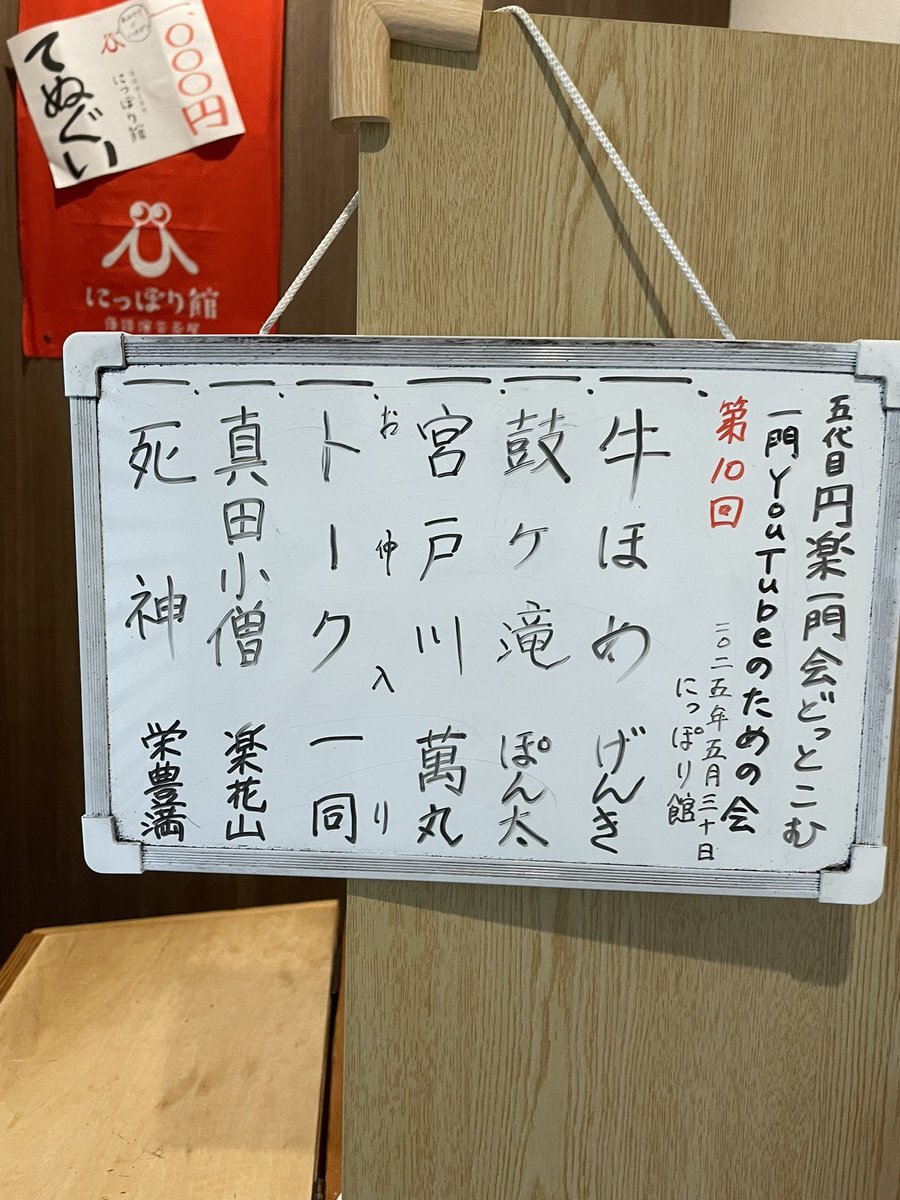 五代目円楽一門会どっとこむ
一門YouTubeのための会
第10回
二〇二五年五月三十日
にっぽり館
一、牛ほめ げんき
一、鼓ヶ滝 ぽん太
一、宮戸川 萬丸
お仲入り
一、トーク 一同
一、真田小僧 楽花山
一、死神 栄豊満
1,000円
にっぽり館
てぬぐい
にっぽり館